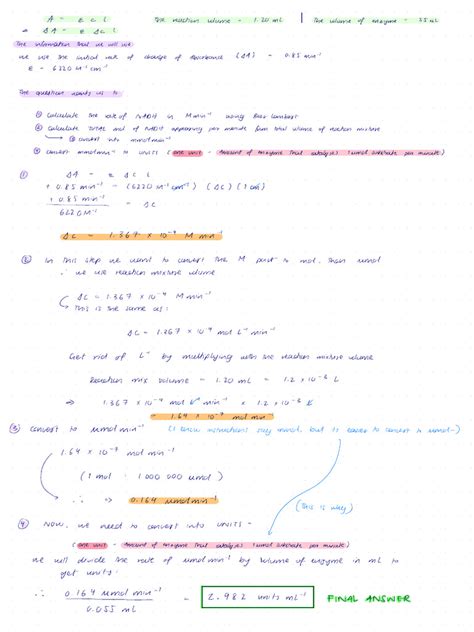 A = ε c l
The reaction volume = 1.20 mL
The volume of enzyme = 55 uL
→ ΔA = ε Δc l
The information that we will use
we use the initial rate of change of absorbance (ΔA) = 0.85 min⁻¹
ε = 6220 M⁻¹ cm⁻¹
The question wants us to
① Calculate the rate of NADH in M min⁻¹ using Beer Lambert
② Calculate TOTAL mol of NADH appearing per minute from total volume of reaction mixture
↳ convert into mmol min⁻¹
③ convert mmol min⁻¹ to UNITS (one unit = Amount of enzyme that catalyses 1 umol substrate per minute)
① ΔA = ε Δc l
+ 0.85 min⁻¹ = (6220 M⁻¹ cm⁻¹) (Δc) (1 cm)
+ 0.85 min⁻¹ / 6220 M⁻¹ = Δc
Δc = 1.367 × 10⁻⁴ M min⁻¹
② In this step we want to convert the M part to mol, then umol
∴ we use reaction mixture volume
Δc = 1.367 × 10⁻⁴ M min⁻¹
This is the same as:
Δc = 1.367 × 10⁻⁴ mol L⁻¹ min⁻¹
Get rid of L⁻¹ by multiplying with the reaction mixture volume
Reaction mix volume = 1.20 mL = 1.2 × 10⁻³ L
⇒ 1.367 × 10⁻⁴ mol L⁻¹ min⁻¹ × 1.2 × 10⁻³ L
= 1.64 × 10⁻⁷ mol min⁻¹
③ Convert to umol min⁻¹ (I know instructions say mmol, but is easier to convert to umol-)
1.64 × 10⁻⁷ mol min⁻¹
(1 mol : 1 000 000 umol)
∴ ⇒ 0.164 umol min⁻¹
(This is why)
④ Now, we need to convert into UNITS -
(one unit = Amount of enzyme that catalyses 1 umol substrate per minute)
we will divide the rate of umol min⁻¹ by volume of enzyme in mL to
get units:
∴ 0.164 umol min⁻¹ / 0.055 mL = 2.982 units mL⁻¹ FINAL ANSWER